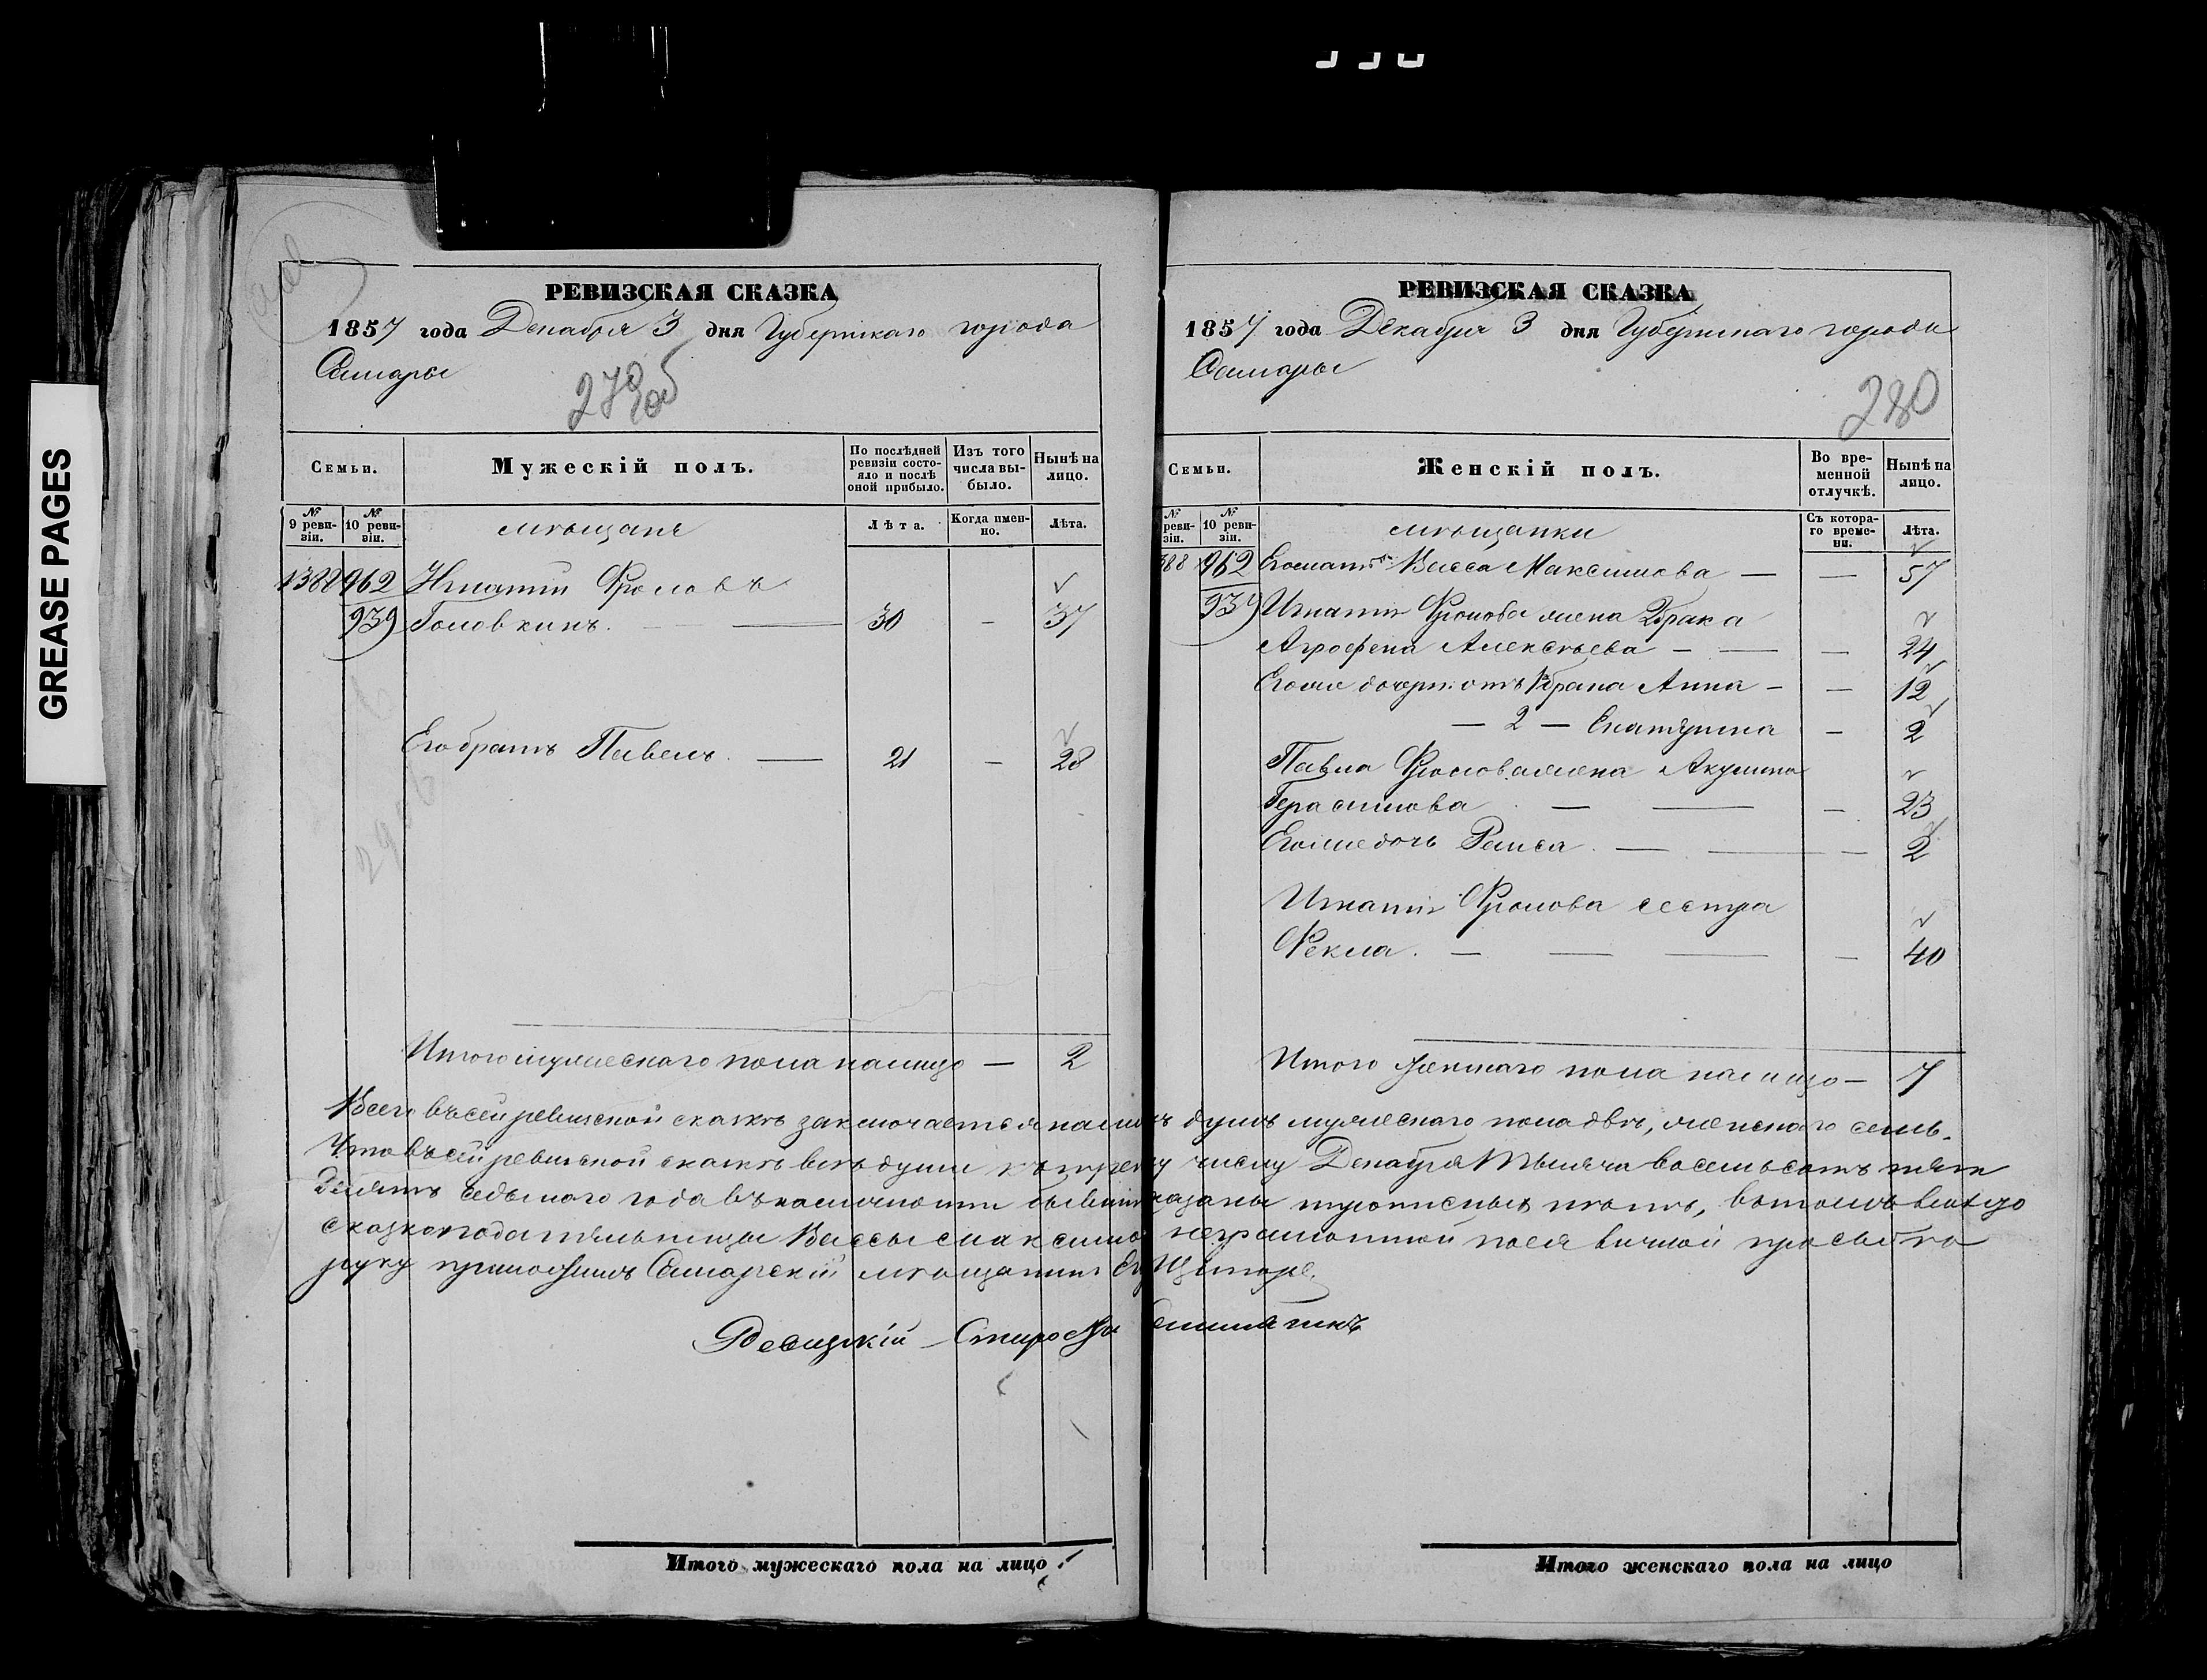 GREASE PAGES
РЕВИЗСКАЯ СКАЗКА
1857 года Декабря 3 дня Губернскаго города
Самары
279 об
Семьи.
Мужескій полъ.
По послѣдней ревизіи состояло и послѣ оной прибыло.
Изъ того числа выбыло.
Нынѣ на лицо.
№ 9 ревизіи.
№ 10 ревизіи.
мѣщане
Лѣта.
Когда именно.
Лѣта.
1388 962 Игнатій Фроловъ
939 Головкинъ. 30 — 37
Его братъ Павелъ. — 21 — 28
Итого мужескаго пола налицо — 2
РЕВИЗСКАЯ СКАЗКА
1857 года Декабря 3 дня Губернскаго города
Самары
280
Семьи.
Женскій полъ.
Во временной отлучкѣ.
Нынѣ на лицо.
№ ревизіи.
№ 10 ревизіи.
мѣщанки
Съ котораго времени.
Лѣта.
388 962 Его мать Васса Максимова — — 57
939 Игнатія Фролова жена 2 брака
Агрофена Алексѣева — — — 24
Его же дочери отъ 1 брака Анна — — 12
— 2 — Екатерина — 2
Павла Фролова жена Акулина
Герасимова — — — 23
Его же дочь Раиса. — — — 2
Игнатія Фролова сестра
Фекла. — — — — 40
Итого женскаго пола налицо — 7
Всего въ сей ревизской сказкѣ заключается налицо душъ мужескаго пола двѣ, женскаго семь.
Что въ сей ревизской сказкѣ всѣ души къ третьему числу Декабря Тысяча восемьсотъ пять
десятъ седьмаго года въ наличности показаны прописныхъ нѣтъ, въ томъ вмѣсто
сказкоподательницы Вассы Максимовой неграмотной по ея личной прозьбѣ
руку приложилъ Самарскій мѣщанинъ
Староста
Итого мужескаго пола на лицо
Итого женскаго пола на лицо